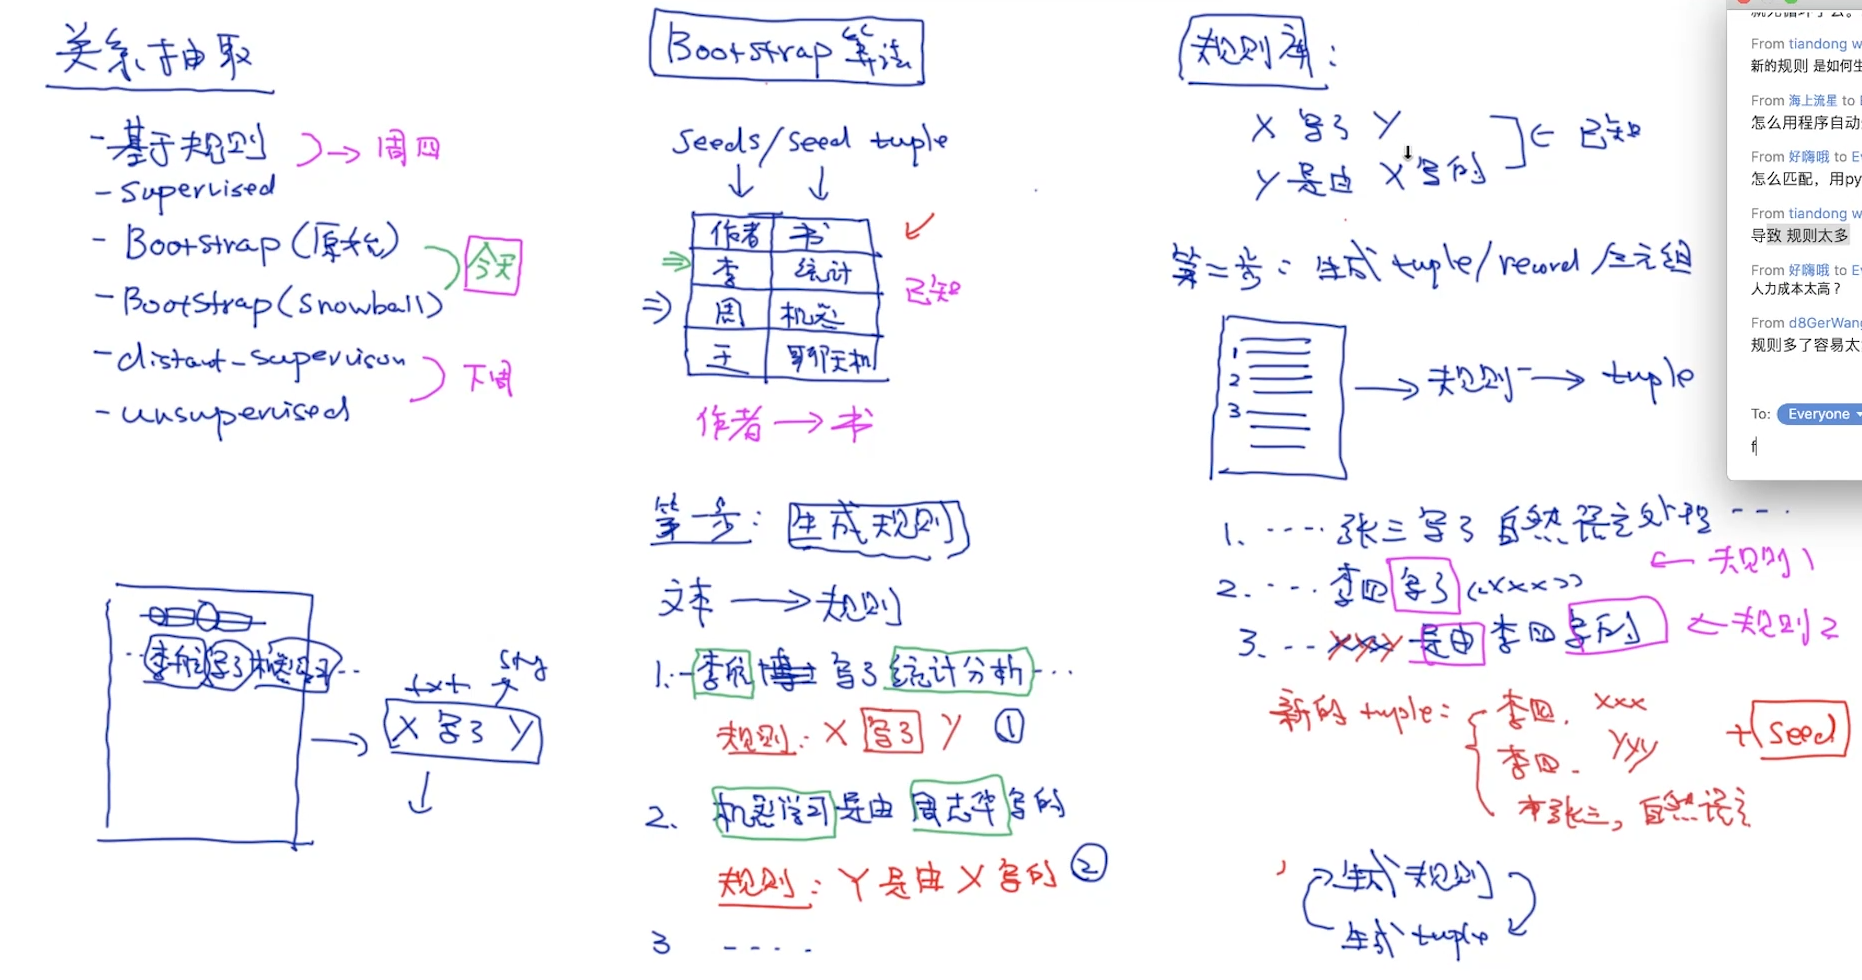 关系抽取
- 基于规则 → 周四
- supervised
- Bootstrap (原始)
今天
- Bootstrap (snowball)
- distant-supervison
下周
- unsupervised
李航 写了 机器学习 ...
txt
X 写了 Y
Bootstrap 算法
seeds/seed tuple
作者 书
李 统计
已知
周 机器
王 聊天机
作者 → 书
第一步: 生成规则
文本 → 规则
1. 李航 写了 统计分析 ...
规则: X 写了 Y ①
2. 机器学习 是由 周志华 写的
规则: Y 是由 X 写的 ②
3 ....
规则库:
X 写了 Y
← 已知
Y 是由 X 写的
第二步: 生成 tuple/record/三元组
1
2
3
→ 规则 → tuple
1. .... 张三 写了 自然语言处理 ...
← 规则1
2. .... 李四 写了 <<xxx>>
3. ... YYY 是由 李四 写的 ← 规则2
新的 tuple: 李四. xxx
+ seed
李四. YYY
张三, 自然语言
生成规则
生成 tuple
From tiandong w
新的规则 是如何生
From 海上流星 to
怎么用程序自动
From 好嗨哦 to Ev
怎么匹配，用py
From tiandong w
导致 规则太多
From 好嗨哦 to Ev
人力成本太高？
From d8GerWang
规则多了容易太
To: Everyone
f